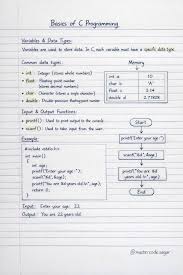 Basics of C Programming
Variables & Data Types:
Variables are used to store data. In C, each variable must have a specific data type.
Common data types:
• int : Integer (stores whole numbers)
• float : Floating point number (stores decimal numbers)
• char : Character (stores a single character)
• double : Double-precision floating-point number
Memory
int a
10
char c
'A'
float b
3.14
double d
2.71828
Input & Output Functions:
• printf() : Used to print output to the console
• scanf() : Used to take input from the user
Example:
#include <stdio.h>
int main()
{
int age;
printf("Enter your age: ");
scanf("%d", &age);
printf("You are %d
years old \n", age);
}
Start
printf("Enter your
age: ")
scanf("%d", &age)
printf("You are %d
years old \n", age)
End
Input: Enter your age: 22
Output: You are 22 years old
@mastercode.sagar